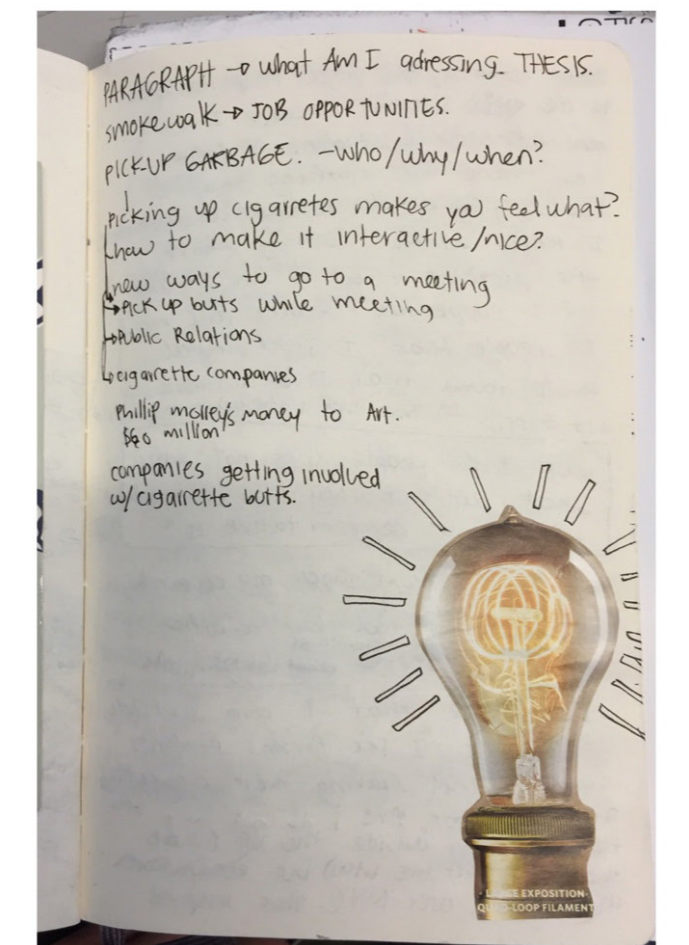 PARAGRAPH → what Am I adressing. THESIS.
smokewalk → JOB OPPORTUNITIES.
PICK-UP GARBAGE. - WHO/why/when?
picking up cigarretes makes you feel what?
how to make it interactive/nice?
new ways to go to a meeting
→ Pick up butts while meeting
→ Public Relations
→ cigarrette companies
Phillip morrey's money to Art.
million
companies getting involved
w/cigarrette butts.
LARGE EXPOSITION-
QUAD-LOOP FILAMENT